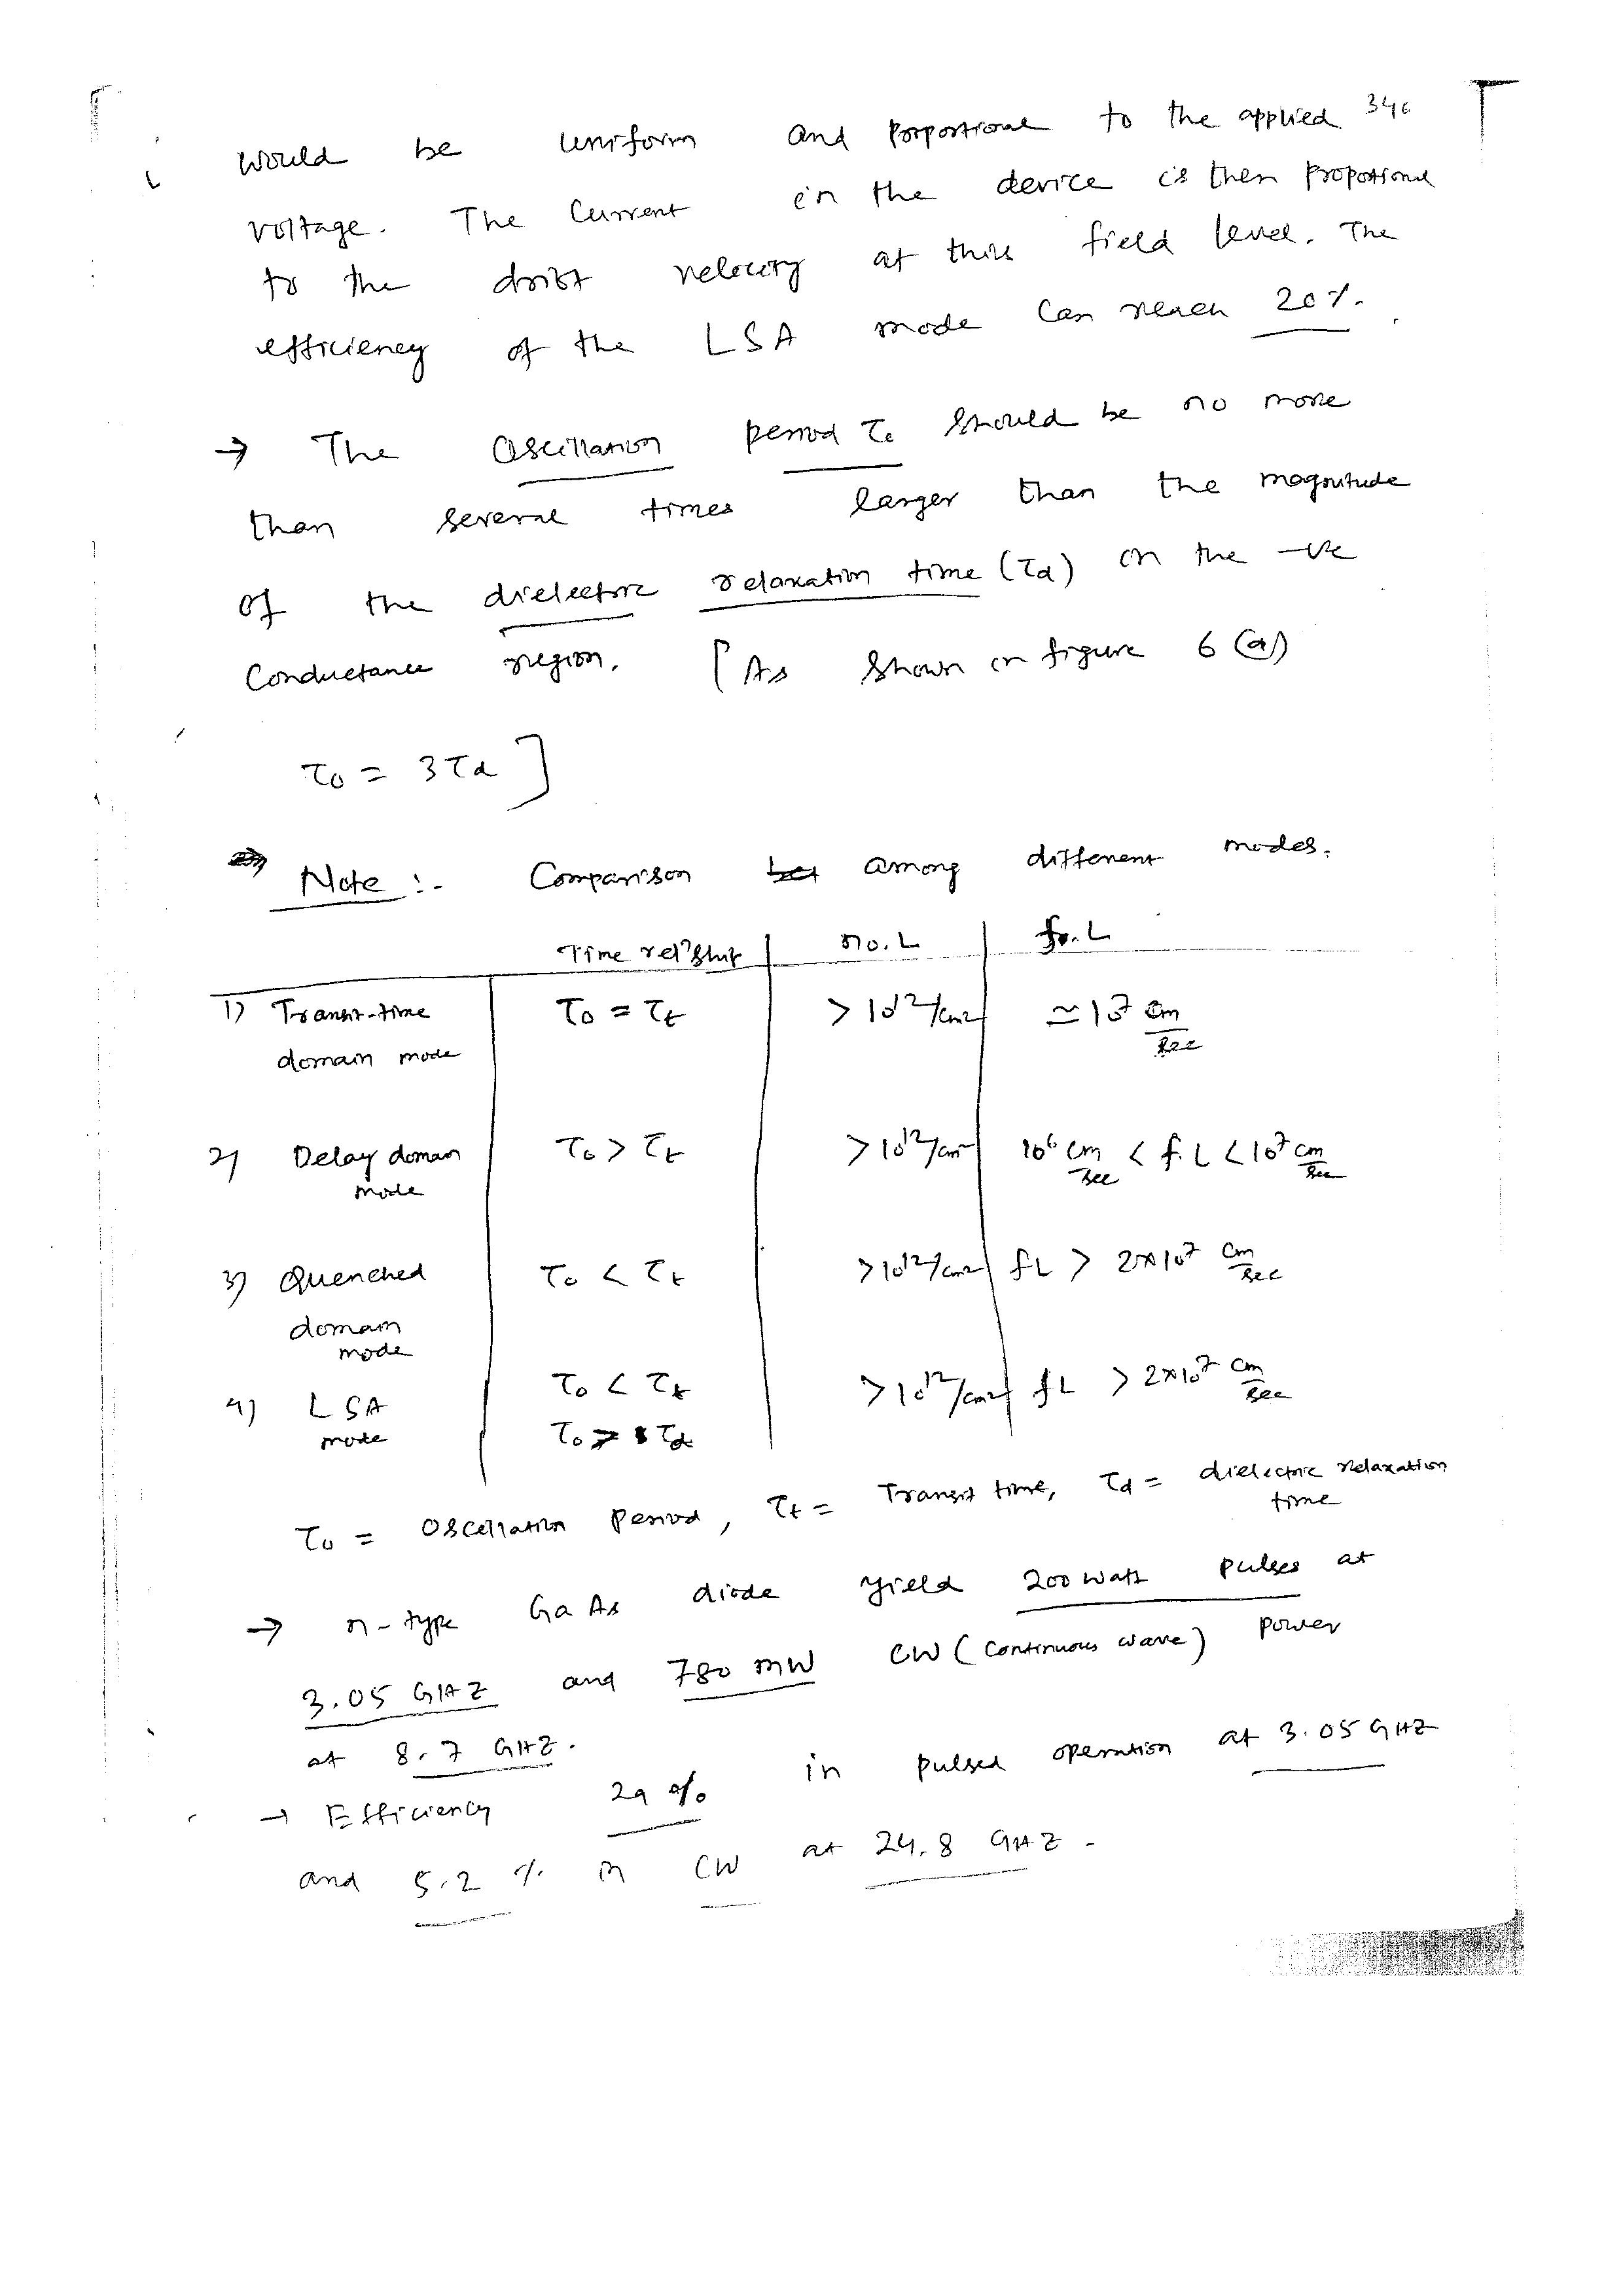 would be uniform and porportional to the applied 346
voltage. The Current in the device is then propotional
to the drift velocity at this field level. The
efficiency of the LSA mode can reach 20%.
→ The Oscillation period τo should be no more
than several times larger than the magnitude
of the dielectric relaxation time (τd) in the -ve
Conductance region. [As shown in figure 6 (a)
τo = 3τd]
Note :- Comparison among different modes.
Time relⁿship | no.L | fo.L
1) Transit-time domain mode | τo = τt | > 10^12/cm2 | ≃ 10^7 cm/sec
2) Delay domain mode | τo > τt | > 10^12/cm2 | 10^6 cm/sec < f.L < 10^7 cm/sec
3) Quenched domain mode | τo < τt | > 10^12/cm2 | fL > 2×10^7 cm/sec
4) LSA mode | τo < τt | > 10^12/cm2 | fL > 2×10^7 cm/sec
τo = Oscellation Period, τt = Transit time, τd = dielectric relaxation time
→ n-type GaAs diode yield 200 watt pulses at
3.05 GHZ and 780 mW CW (continuous wave) power
at 8.7 GHZ.
→ Efficiency 29 % in pulsed operation at 3.05 GHZ
and 5.2 % in CW at 24.8 GHZ -